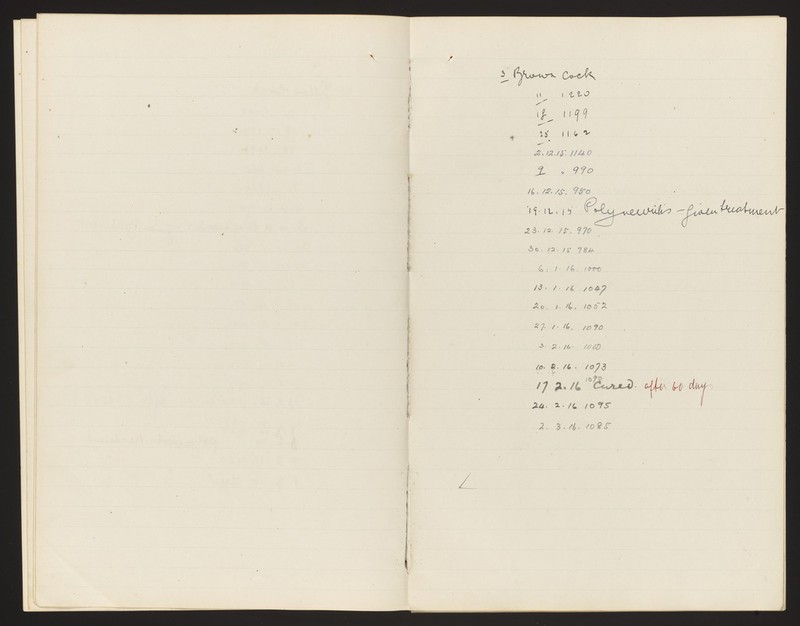 3 Brown Cock
11 1220
18 1199
25 1162
2.12.15 1140
9 " 990
16.12.15. 950
19.12.15 Polyneuritis – given treatment
23.12.15. 970
30.12.15 984
6.1.16. 1000
13.1.16 1047
20.1.16. 1052
27.1.16. 1090
3.2.16. 1060
10.2.16. 1073
17 2.16 1080 Cured. after 60 day
24.2.16 1095
2.3.16. 1085